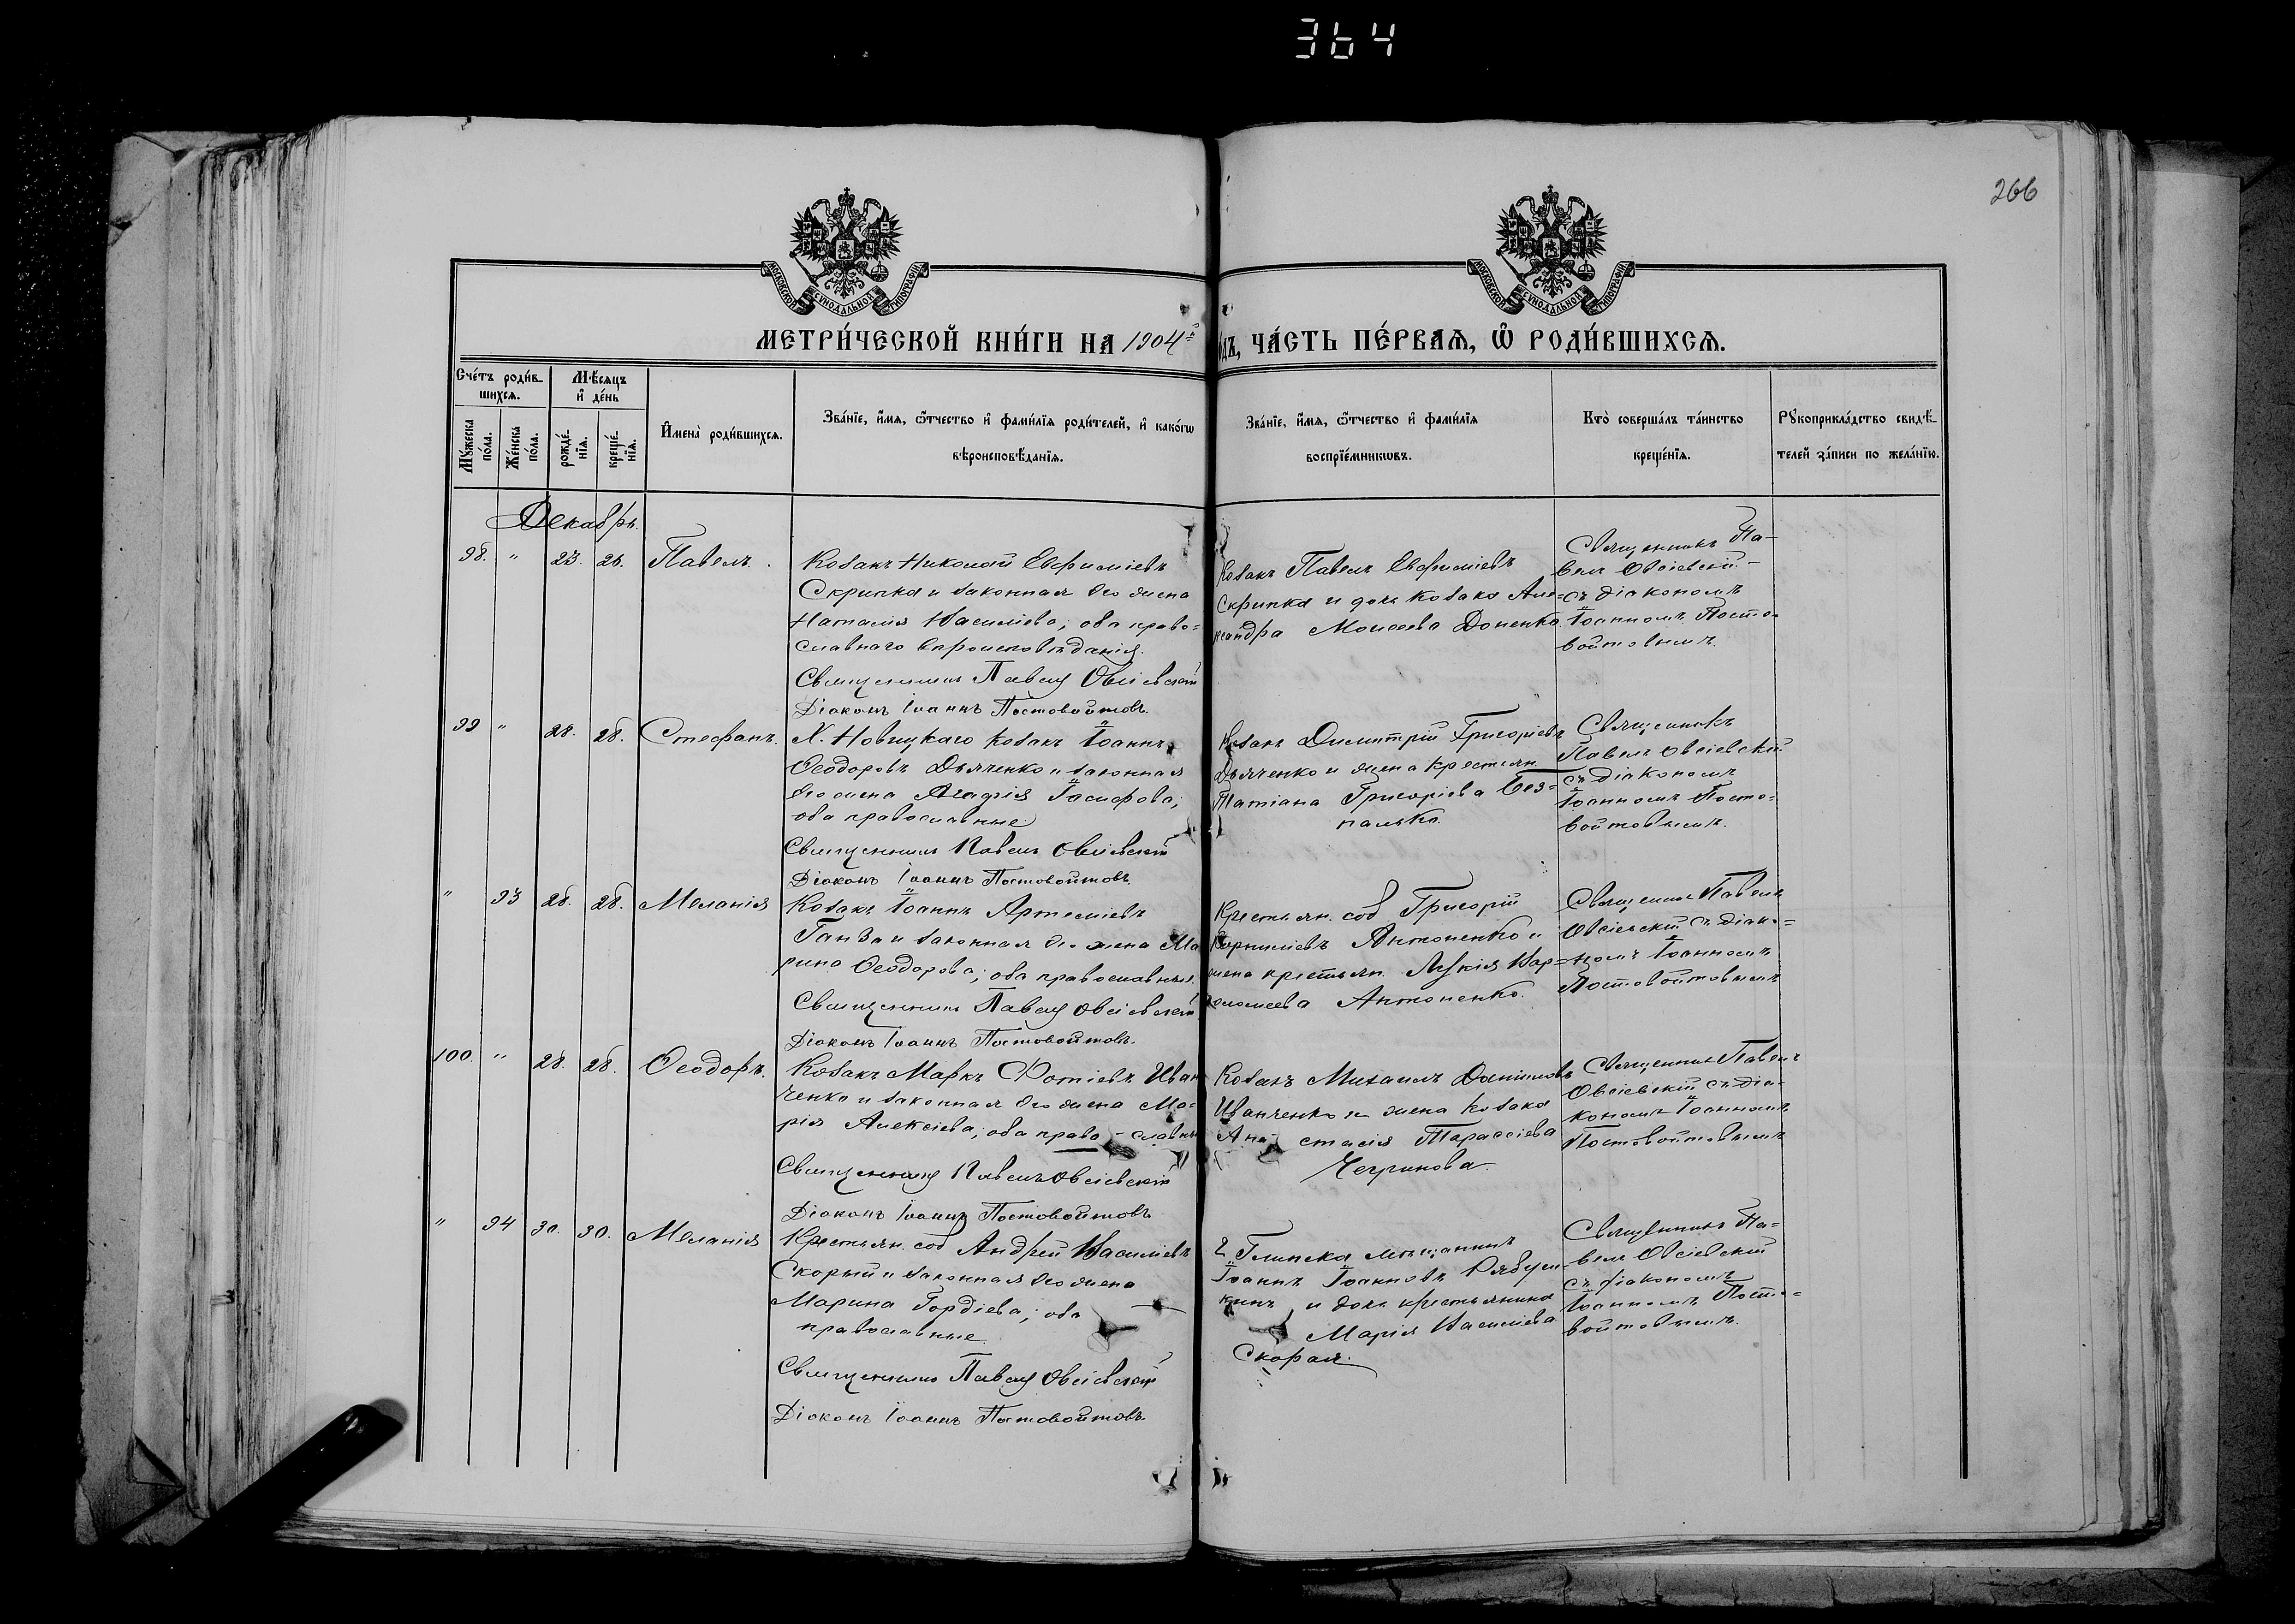 364
266
МОСКОВСКОЙ СѴНОДАЛЬНОЙ ТИПОГРАФІИ
МОСКОВСКОЙ СѴНОДАЛЬНОЙ ТИПОГРАФІИ
МЕТРИ́ЧЕСКОЙ КНИ́ГИ НА 1904й
ОДЪ, ЧА́СТЬ ПЕ́РВАѦ, Ѡ҆ РОДИ́ВШИХСѦ.
Сче́тъ роди́в-
шихсѧ.
Мꙋ́жеска по́ла.
Же́нска по́ла.
Мѣ́сѧцъ
и҆ де́нь
рожде́-
нїѧ.
креще́-
нїѧ.
И҆мена̀ роди́вшихсѧ.
Зва́нїе, и҆́мѧ, ѻ҆́тчество и҆ фами́лїѧ роди́телей, и҆ како́гѡ
вѣроисповѣ́данїѧ.
Зва́нїе, и҆́мѧ, ѻ҆́тчество и҆ фами́лїѧ
воспрїе́мникѡвъ.
Кто̀ соверша́лъ та́инство
креще́нїѧ.
Рꙋкоприкла́дство свидѣ́-
телей за́писи по жела́нїю.
Декабрь.
98. " 23. 26. Павелъ.
Козакъ Николай Евфиміевъ
Скрипка и законная его жена
Наталія Василіева; оба право-
славнаго вѣроисповѣданія.
Священникъ Павелъ Овсіевскій
Діаконъ Іоаннъ Постовойтовъ.
Козакъ Павелъ Евфиміевъ
Скрипка и дочь козака Але-
ксандра Моисеева Доненко.
Священникъ Па-
велъ Овсіевскій
съ діакономъ
Іоанномъ Посто-
войтовымъ.
99 " 28. 28. Стефанъ.
Х. Новицкаго козакъ Іоаннъ
Ѳеодоровъ Дьяченко и законная
его жена Агафія Іосифова;
оба православные
Священникъ Павелъ Овсіевскій
Діаконъ Іоаннъ Постовойтовъ.
Козакъ Димитрій Григоріевъ
Дьяченко и жена крестьян.
Татіана Григоріева Без-
палько.
Священникъ
Павелъ Овсіевскій
съ діакономъ
Іоанномъ Посто-
войтовымъ.
" 93 28. 28. Меланія
Козакъ Іоаннъ Артеміевъ
Ганза и законная его жена Ма
рина Ѳеодорова; оба православные.
Священникъ Павелъ Овсіевскій
Діаконъ Іоаннъ Постовойтовъ.
Крестьян. соб Григорій
Корниліевъ Антоненко и
жена крестьян. Лукія Вар-
ѳоломеева Антоненко.
Священник Павелъ
Овсіевскій съ діако-
номъ Іоанномъ
Постовойтовымъ
100. " 28. 28. Ѳеодоръ.
Козакъ Маркъ Фотіевъ Иван
ченко и законная его жена Ма-
рія Алексіева; оба право-славны
Священникъ Павелъ Овсіевскій
Діаконъ Іоаннъ Постовойтовъ
Козакъ Михаилъ Даниловъ
Иванченко и жена козака
Ана- стасія Тарасіева
Чегринова.
Священник Павелъ
Овсіевскій съ діа-
кономъ Іоанномъ
Постовойтовымъ
" 94 30. 30. Меланія
Крестьян. соб Андрей Василіевъ
Скорый и законная его жена
Марина Гордіева; оба
православные
Священникъ Павелъ Овсіевскій
Діаконъ Іоаннъ Постовойтовъ
Г. Глинска мѣщанинъ
Іоаннъ Іоанновъ Рябуш-
кинъ и дочь крестьянина
Марія Василіева
Скорая.
Священникъ Па-
велъ Овсіевскій
съ діакономъ
Іоанномъ Посто-
войтовымъ.